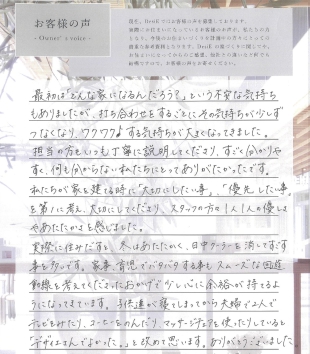 お客様の声
- Owner's voice -
最初は「どんな家になるんだろう?」という不安な気持ち
もありましたが、打ち合わせをするごとにその気持ちが少しず
つなくなり、ワクワク♪する気持ちが大きくなってきました。
担当の方もいつも丁寧に説明してくださり、すごく分かりや
すく、何も分からない私たちにとってありがたかったです。
私たちが家を建てる時に「大切にしたい事」、「優先したい事」
を第1に考え、大切にしてくださり、スタッフの方々1人1人の優しさ
やあたたかさを感じました。
実際に住みだすと、冬はあたたかく、日中クーラーを消してすごす
事も多いです。家事、育児でバタバタする事もスムーズな回遊
動線を考えてくださったおかげで少し心に余裕が持てるよ
うになってきています。子供達が寝てしまってから夫婦で2人で
テレビをみたり、コーヒーをのんだり、マッサージチェアを使ったりしていると
「デザオさんでよかった。」と改めて思います。ありがとうございました。